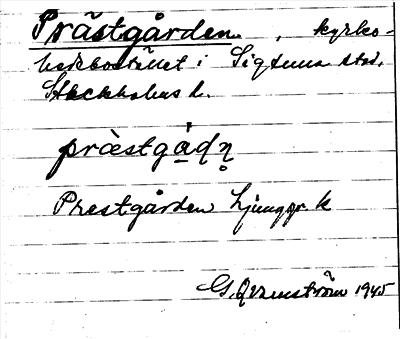 Prästgården, kyrko-
herdbostället i Sigtuna stad,
Stockholms l.
præ̀stgǻd̥n̥
Prestgården Ljunggr. k
G. Qvarnström 1945